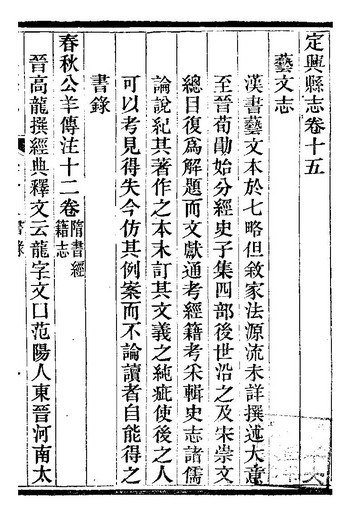 定興縣志卷十五
藝文志
漢書藝文本於七略但敘家法源流未詳撰述大意
至晉荀勖始分經史子集四部後世沿之及宋崇文
總目復爲解題而文獻通考經籍考采輯史志諸儒
論說紀其著作之本末訂其文義之純疵使後之人
可以考見得失今仿其例案而不論讀者自能得之
書錄
春秋公羊傳注十二卷隋書經籍志
晉高龍撰經典釋文云龍字文囗范陽人東晉河南太
書錄